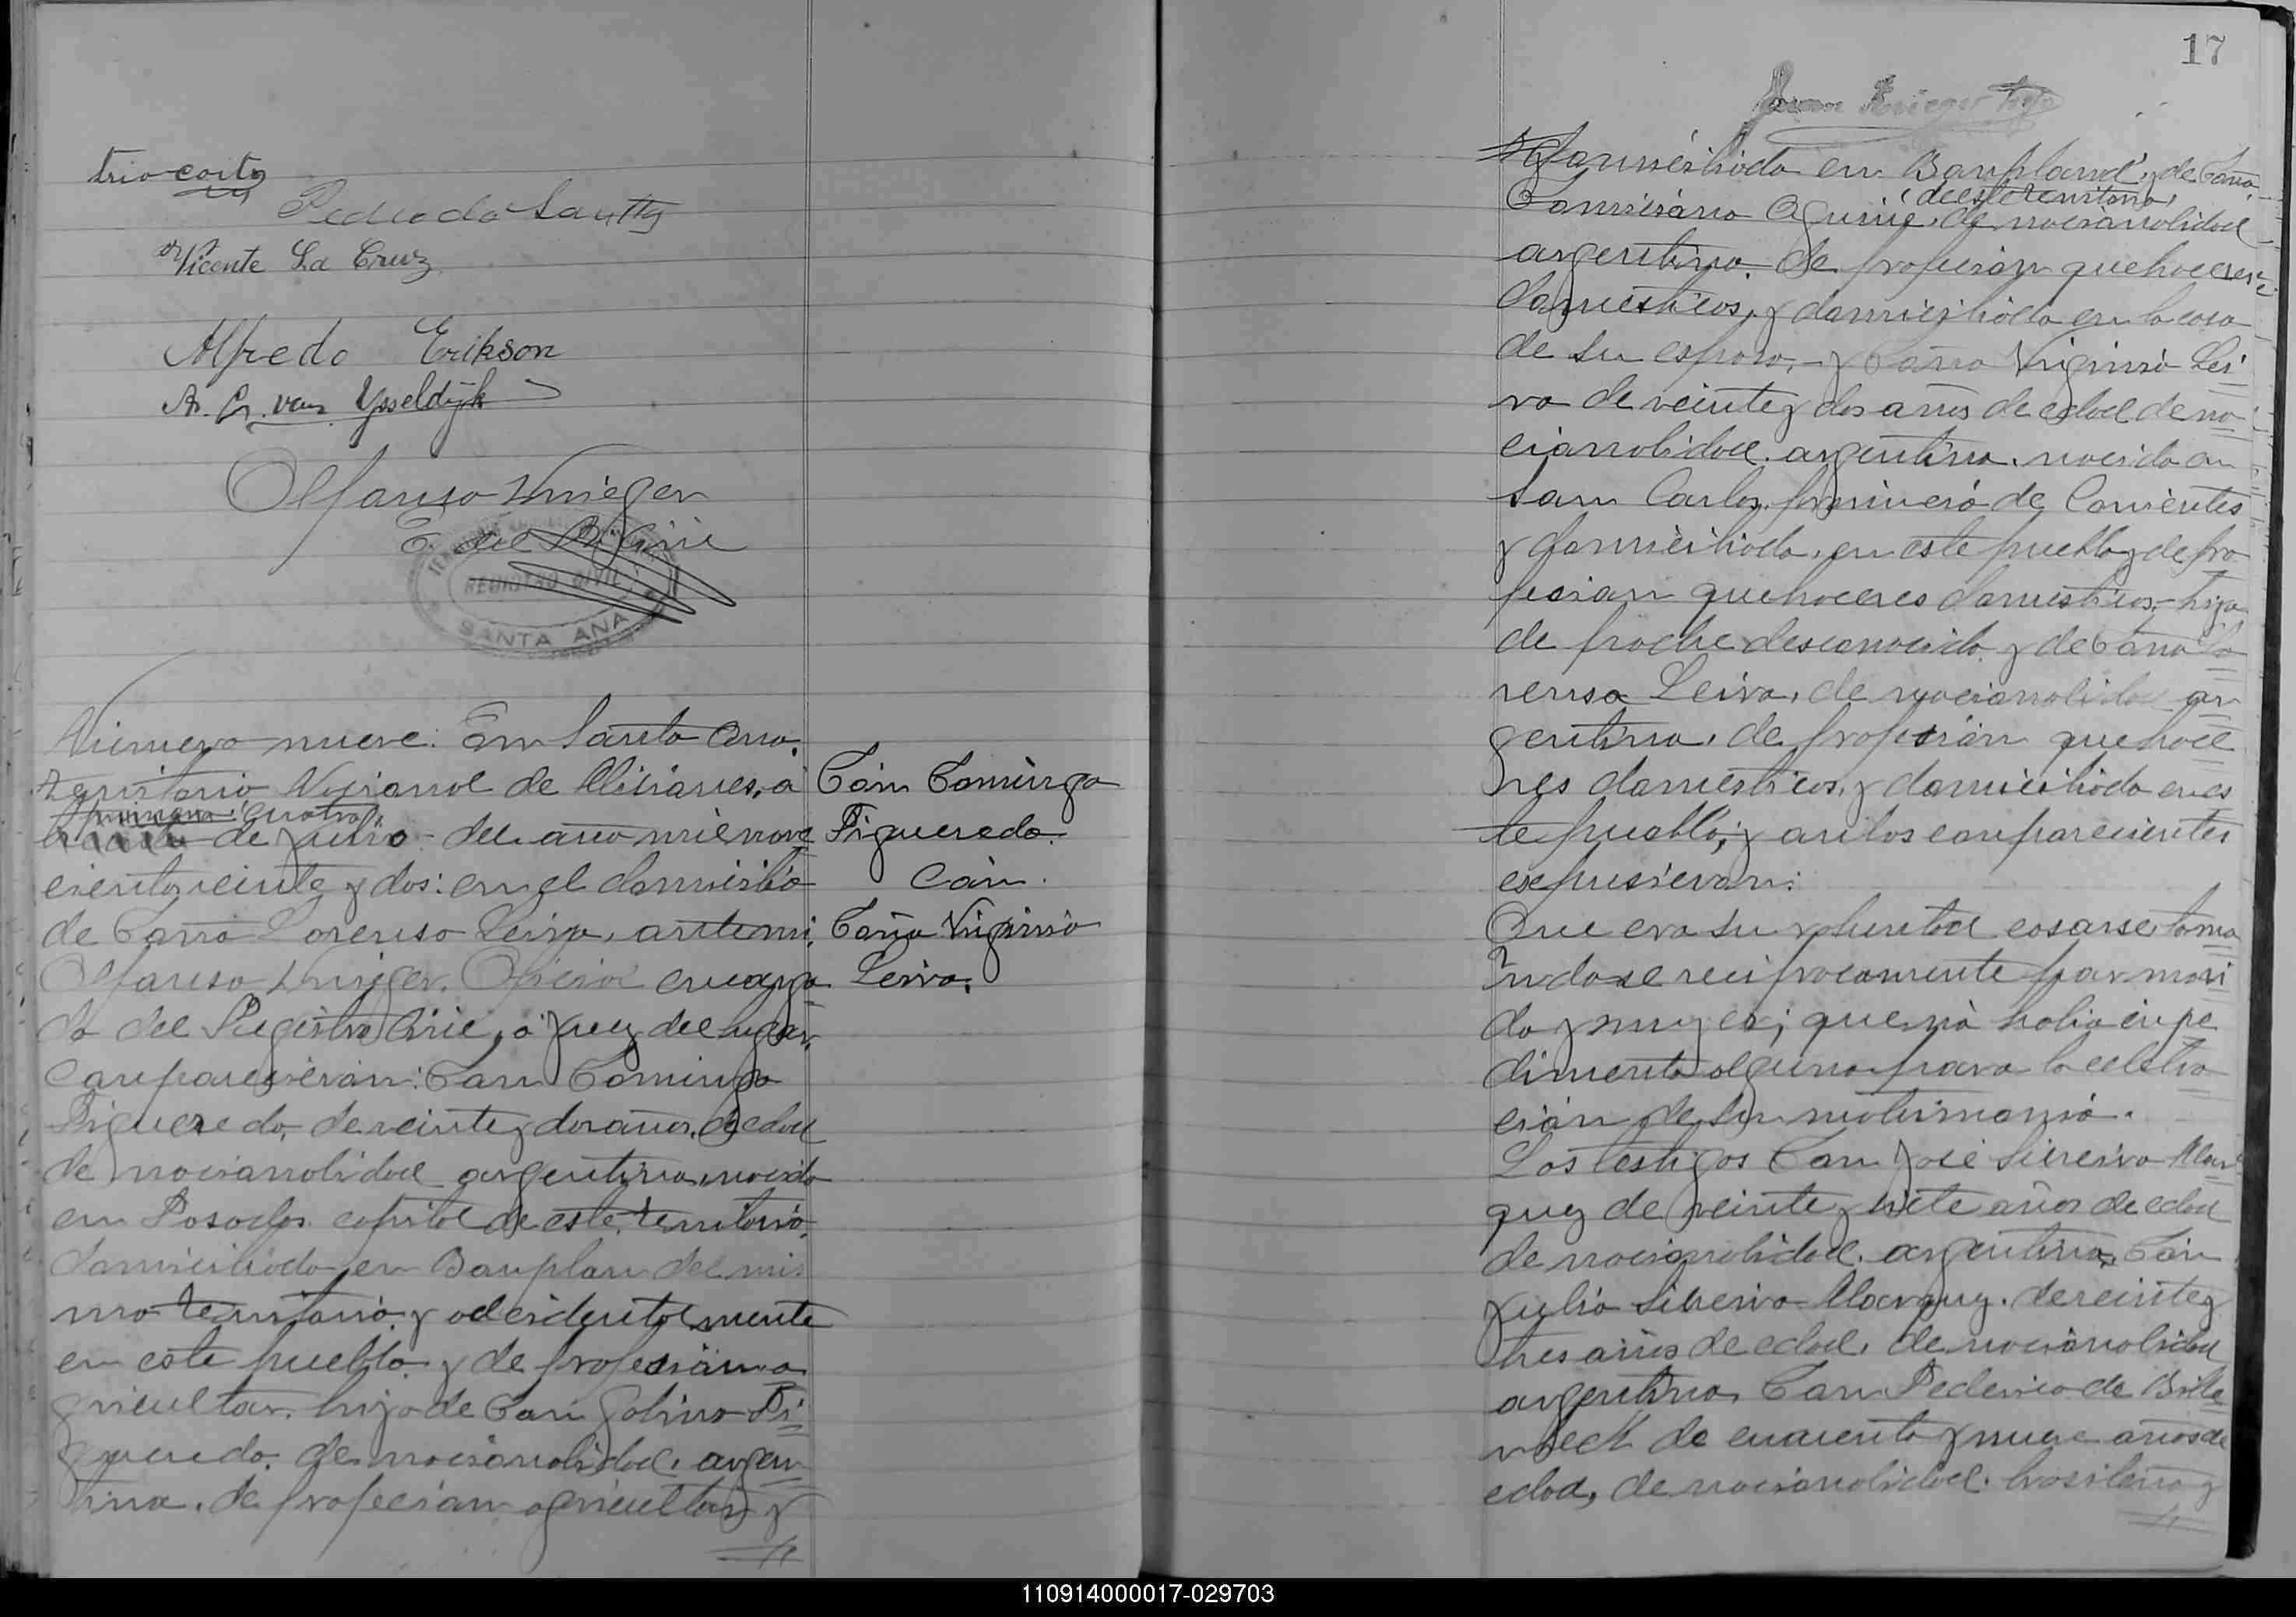 trio corta
Pedro do Santtos
Vicente La Cruz
Alfredo Erikson
A. G. van Ysseldijk
Alfonso Krieger
E. del R. Civil
REGISTRO CIVIL
SANTA ANA
Número nueve: En Santa Ana,
territorio Nacional de Misiones, á
cuatro
de Julio del año mil nove
cientos veinte y dos: en el domicilio
de Doña Lorensa Leiva, ante mi,
Alfonso Krieger, Oficial encarga
do del Registro Civil, ó Juez del lugar,
Comparecieron: Don Domingo
Figueredo, de veinte y dos años, de edad
de nacionalidad argentina, nacido
en Posadas capital de este territorio,
domiciliado en Bonplan del mis
mo territorio, y accidentalmente
en este pueblo, y de profesión a
gricultor, hijo de Don Galino Fi
gueredo, de nacionalidad, argen
tina, de profesión agricultor y
Don Domingo
Figueredo.
Con.
Doña Virginia
Leiva.
17
domiciliado en Bonpland, y de Doña
de este territorio,
Aguirre, de nacionalidad
argentina, de profesión quehaceres
domésticos, y domiciliada en la casa
de su esposo, y Doña Virginia Lei
va de veinte y dos años de edad de na
cionalidad argentina, nacida en
San Carlos, provincia de Corrientes
y domiciliada, en este pueblo y de pro
fesión quehaceres domésticos, hija
de padre desconocido y de Doña Lo
rensa Leiva, de nacionalidad ar
gentina, de profesión quehace
res domésticos, y domiciliada en es
te pueblo; y antes comparecientes
expusieron:
Que era su voluntad casarse toma
ndose reciprocamente por mari
do y mujer; que no había inpe
dimento alguno para la celebra
ción de su matrimonio.
Los testigos Don José Silveira Mar
quez de veinte y siete años de edad
de nacionalidad, argentina, Don
Julio Silveira Marquez, de veinte y
tres años de edad, de nacionalidad
argentina, Don Federico de
de cuarenta y nueve años de
edad, de nacionalidad, brasileña y
110914000017-029703